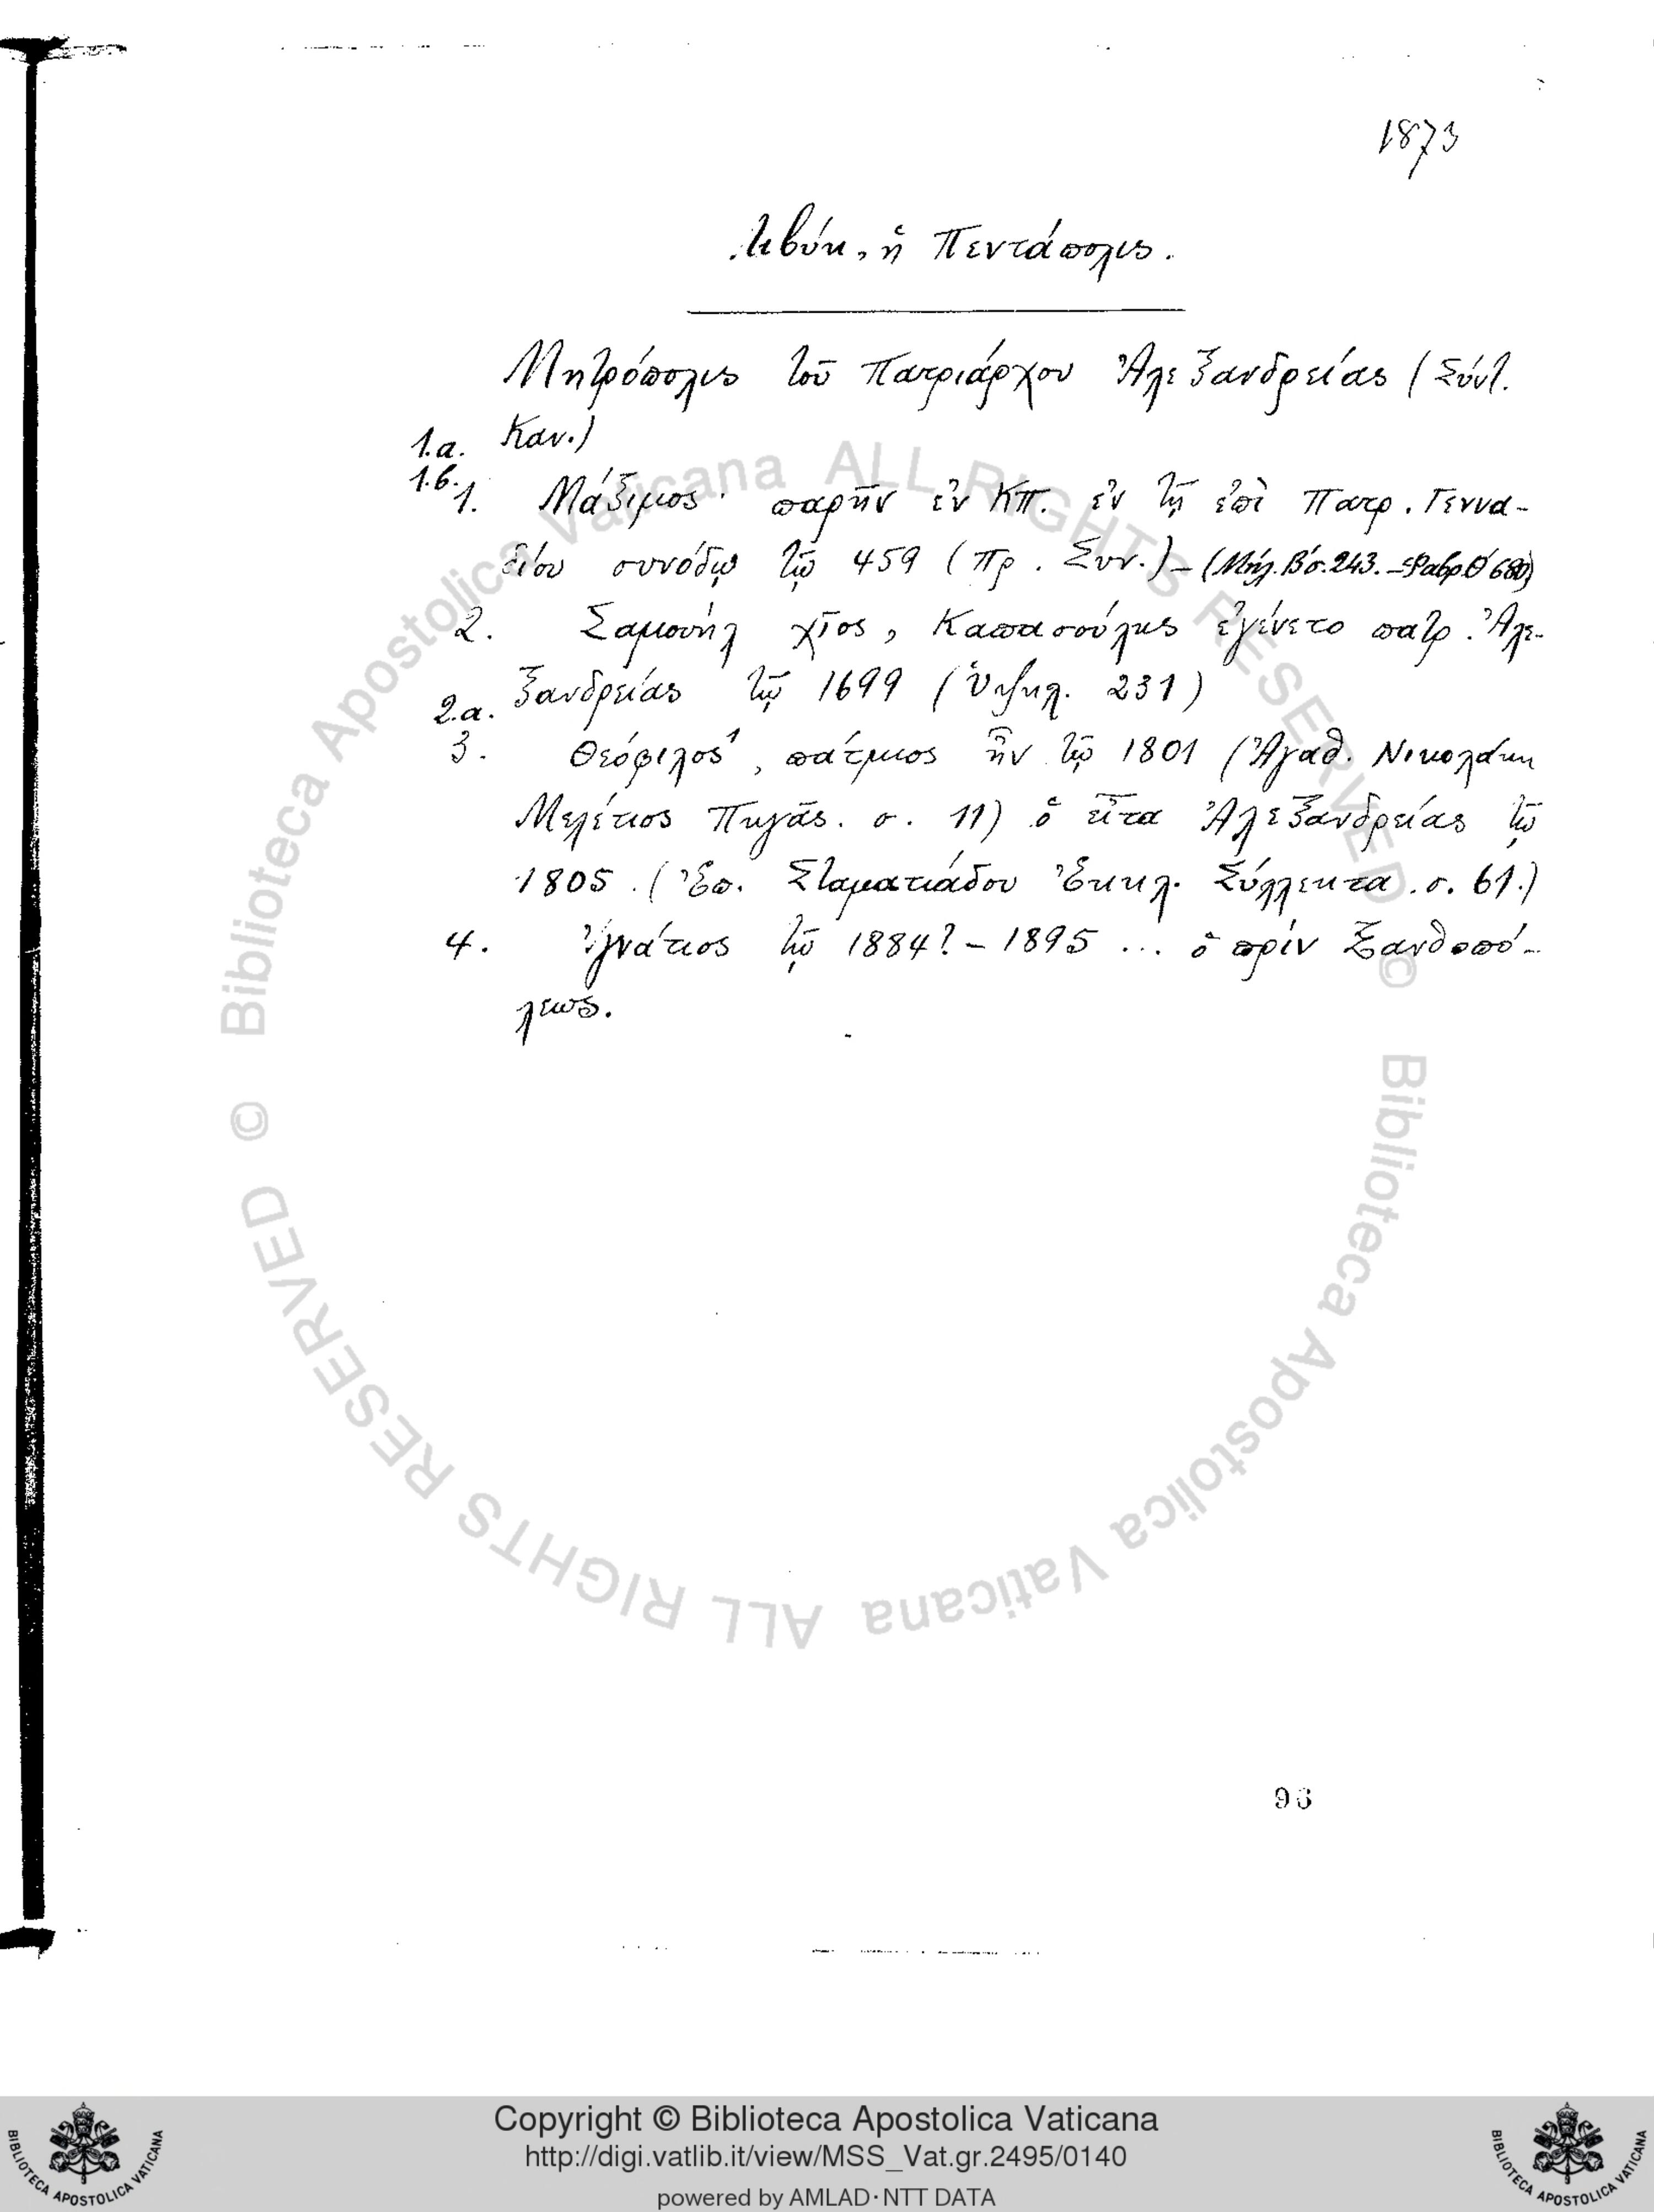 1873
Λιβύη, ἢ Πεντάπολις.
Μητρόπολις τοῦ Πατριάρχου Ἀλεξανδρείας (Σύντ.
1.α. Καν.)
1.β.
1. Μάξιμος· παρῆν ἐν ΚΠ. ἐν τῇ ἐπὶ Πατρ. Γεννα-
δίου συνόδῳ τῷ 459 (Πρ. Συν.) – (Μήλ. Β΄ σ. 243. – Φαβρ. Θ΄ 680)
2. Σαμουὴλ χῖος, Καπασούλης ἐγένετο πατρ. Ἀλε-
ξανδρείας τῷ 1699 (Ὑψηλ. 231)
2.α.
3. Θεόφιλος, πάτμιος ἦν τῷ 1801 (Ἀγαθ. Νικολάκη
Μελέτιος Πηγᾶς. σ. 11) ὁ εἶτα Ἀλεξανδρείας τῷ
1805. (Ἐπ. Σταματιάδου Ἐκκλ. Σύλλεκτα. σ. 61.)
4. Ἰγνάτιος τῷ 1884? – 1895 ... ὁ πρίν Ξανθοπό-
λεως.
96
© Biblioteca Apostolica Vaticana ALL RIGHTS RESERVED
© Biblioteca Apostolica Vaticana ALL RIGHTS RESERVED
BIBLIOTECA APOSTOLICA VATICANA
Copyright © Biblioteca Apostolica Vaticana
http://digi.vatlib.it/view/MSS_Vat.gr.2495/0140
powered by AMLAD·NTT DATA
BIBLIOTECA APOSTOLICA VATICANA